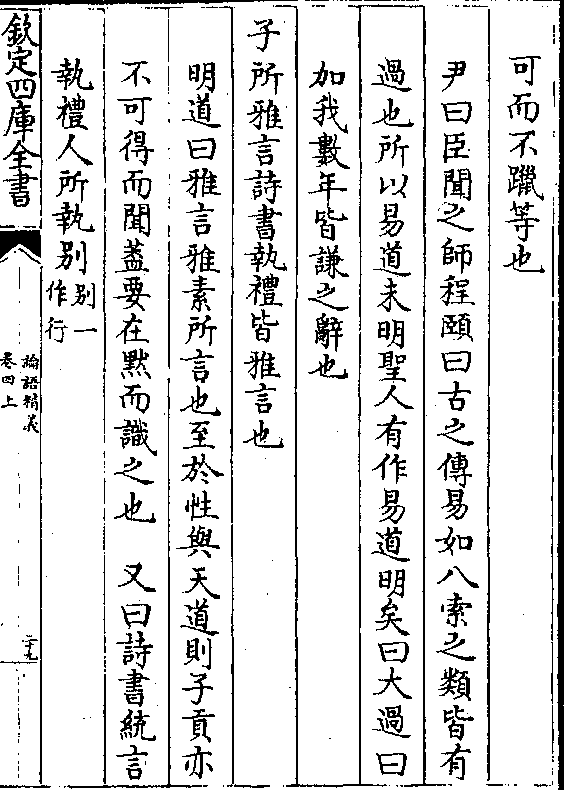 可而不躐等也
尹曰臣聞之師程頤曰古之傳易如八索之類皆有
過也所以易道未明聖人有作易道明矣曰大過曰
加我數年皆謙之辭也
子所雅言詩書執禮皆雅言也
明道曰雅言雅素所言也至於性與天道則子貢亦
不可得而聞葢要在默而識之也　又曰詩書統言
執禮人所執别别一作行
欽定四庫全書
論語精義
卷四上